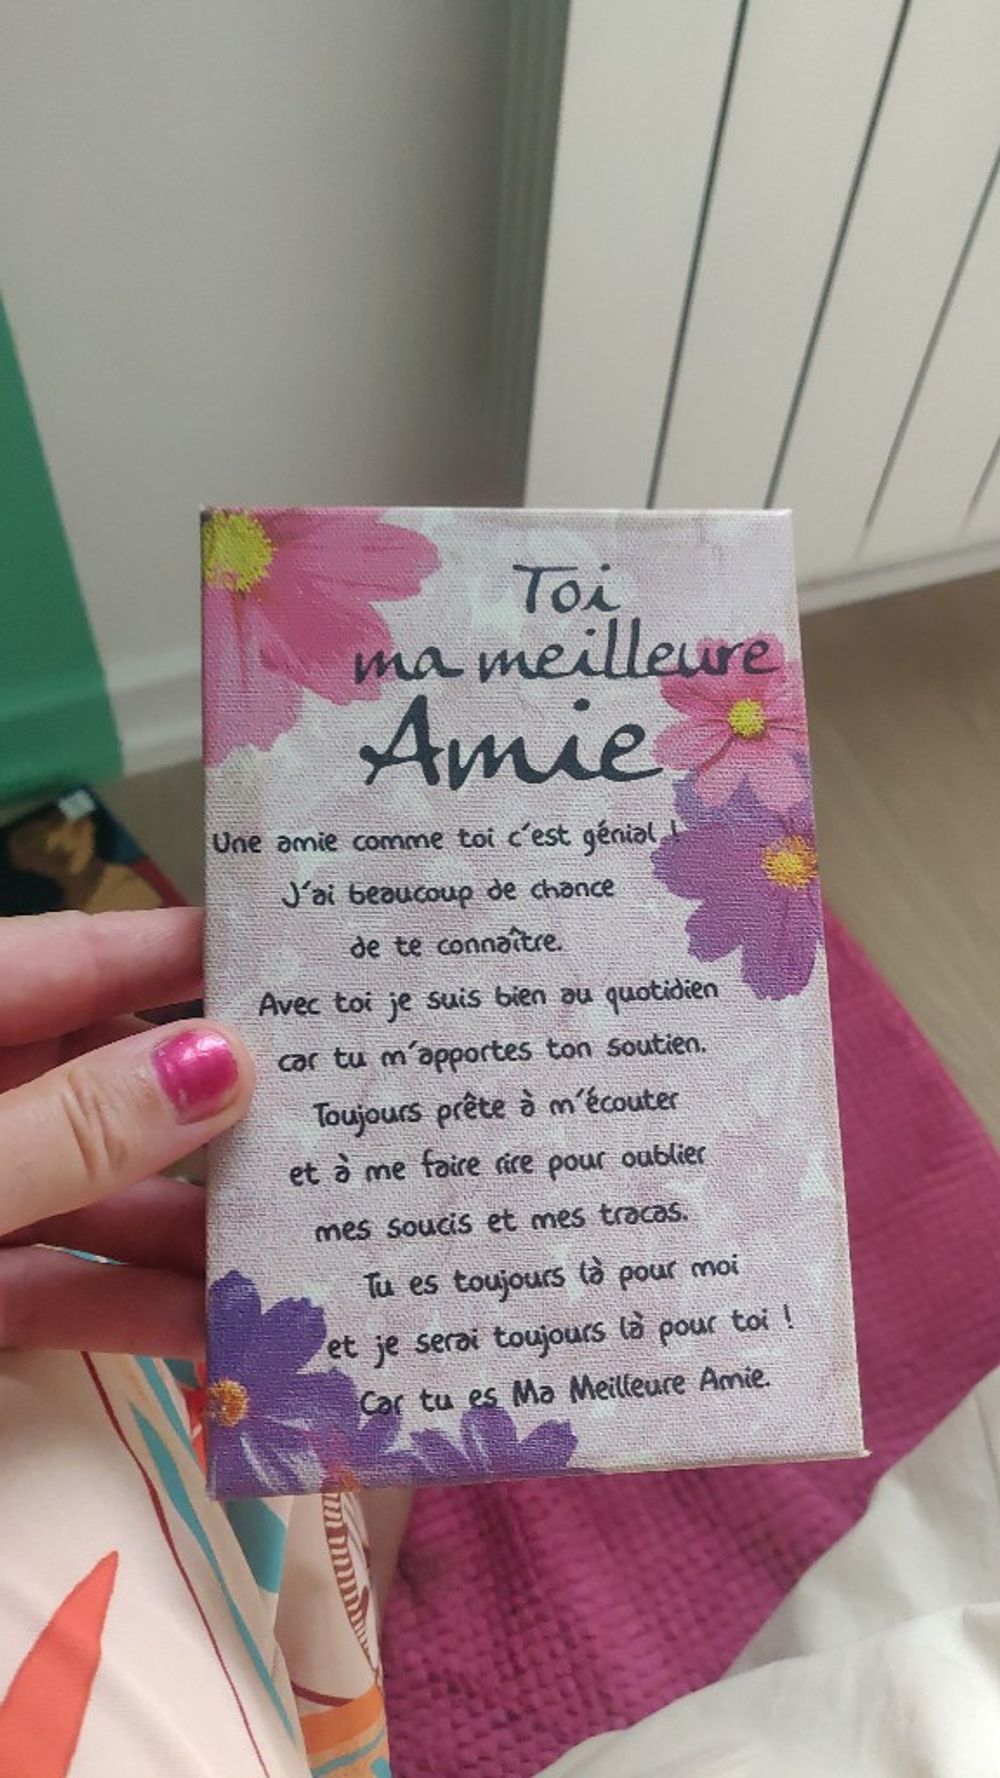 Toi
ma meilleure
Amie
Une amie comme toi c'est génial !
J'ai beaucoup de chance
de te connaître.
Avec toi je suis bien au quotidien
car tu m'apportes ton soutien.
Toujours prête à m'écouter
et à me faire rire pour oublier
mes soucis et mes tracas.
Tu es toujours là pour moi
et je serai toujours là pour toi !
Car tu es Ma Meilleure Amie.